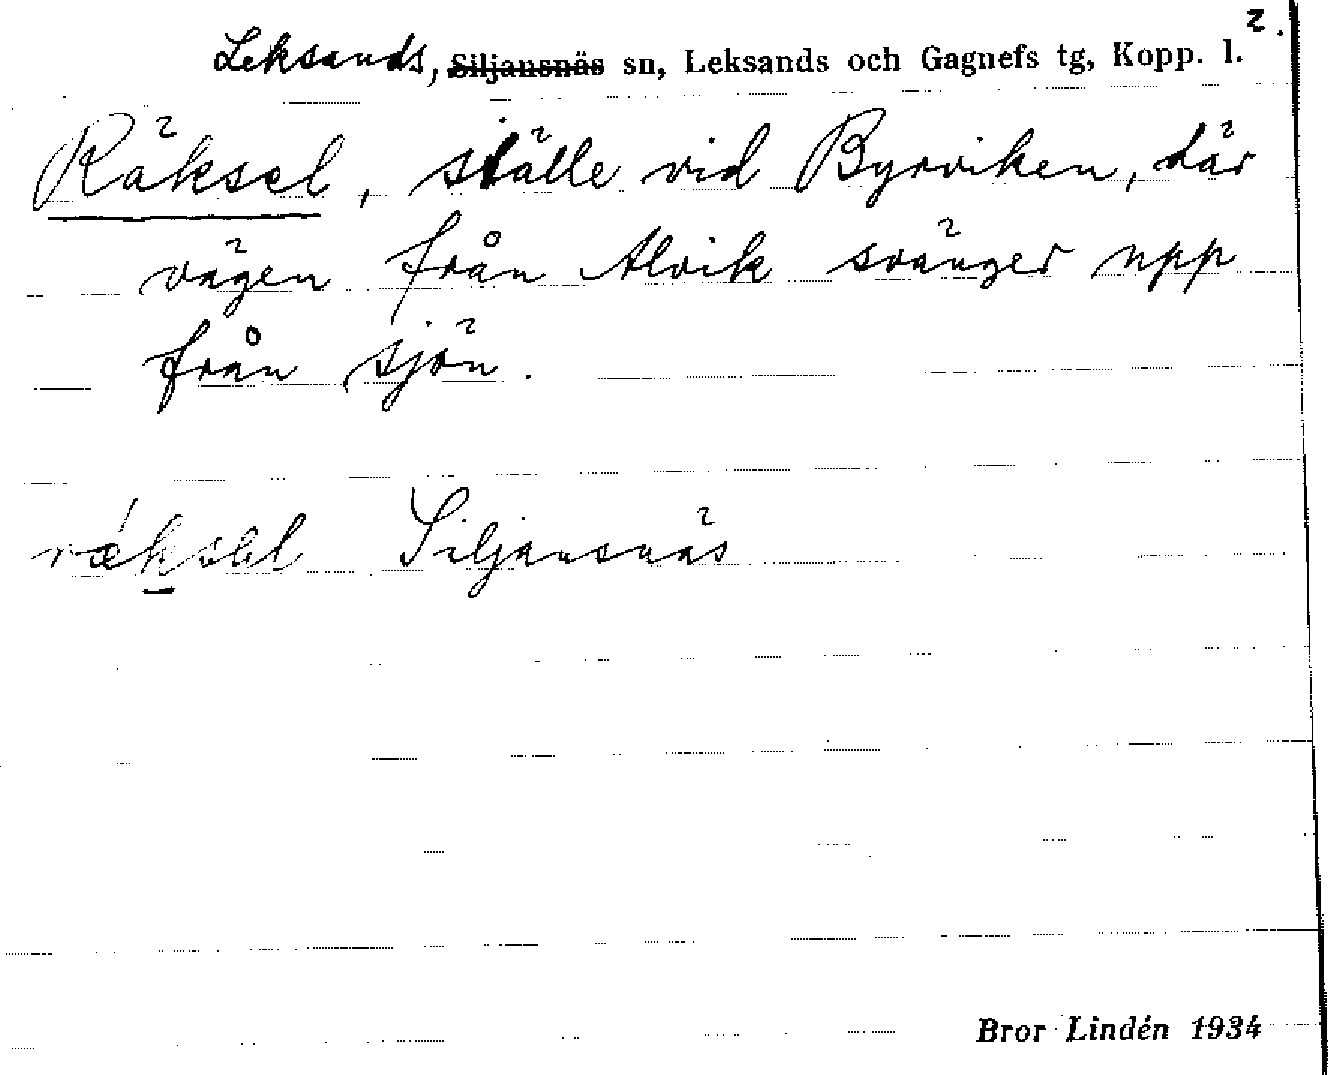 2.
Leksands, Siljansnäs sn, Leksands och Gagnefs tg, Kopp. l.
Räksel, ställe vid Byrviken, där
vägen från Alvik svänger upp
från sjön.
Siljansnäs
Bror Lindén 1934